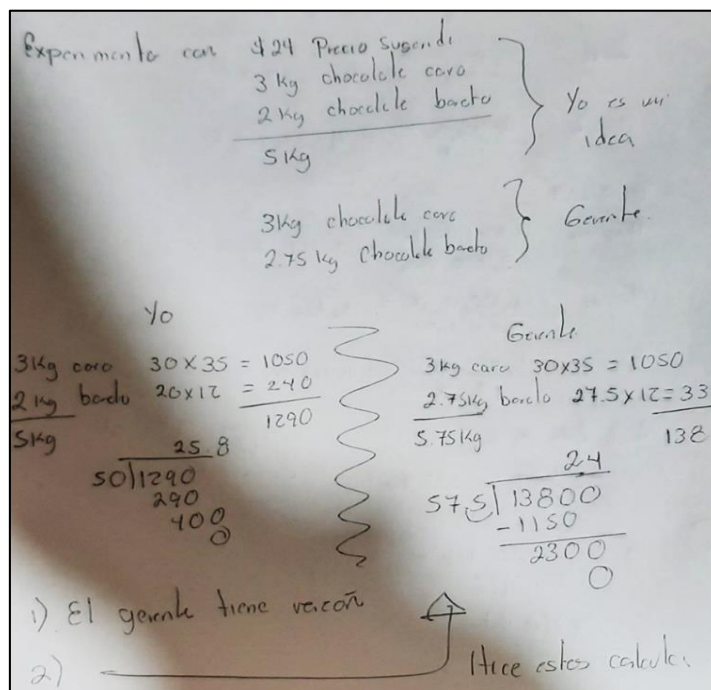 Experimento con $24 Precio Sugerido
3 Kg chocolate caro
2 Kg chocolate barato
5 Kg
Yo es mi
idea
3Kg chocolate caro
2.75 kg Chocolate barato
Gerente.
Yo
3Kg caro 30x35 = 1050
2 kg barato 20x12 = 240
5Kg 1290
25.8
50)1290
290
400
0
Gerente
3kg caro 30x35 = 1050
2.75kg barato 27.5x12=33
5.75Kg 138
24
57.5)13800
-1150
2300
0
1) El gerente tiene
2) Hice estos calculo